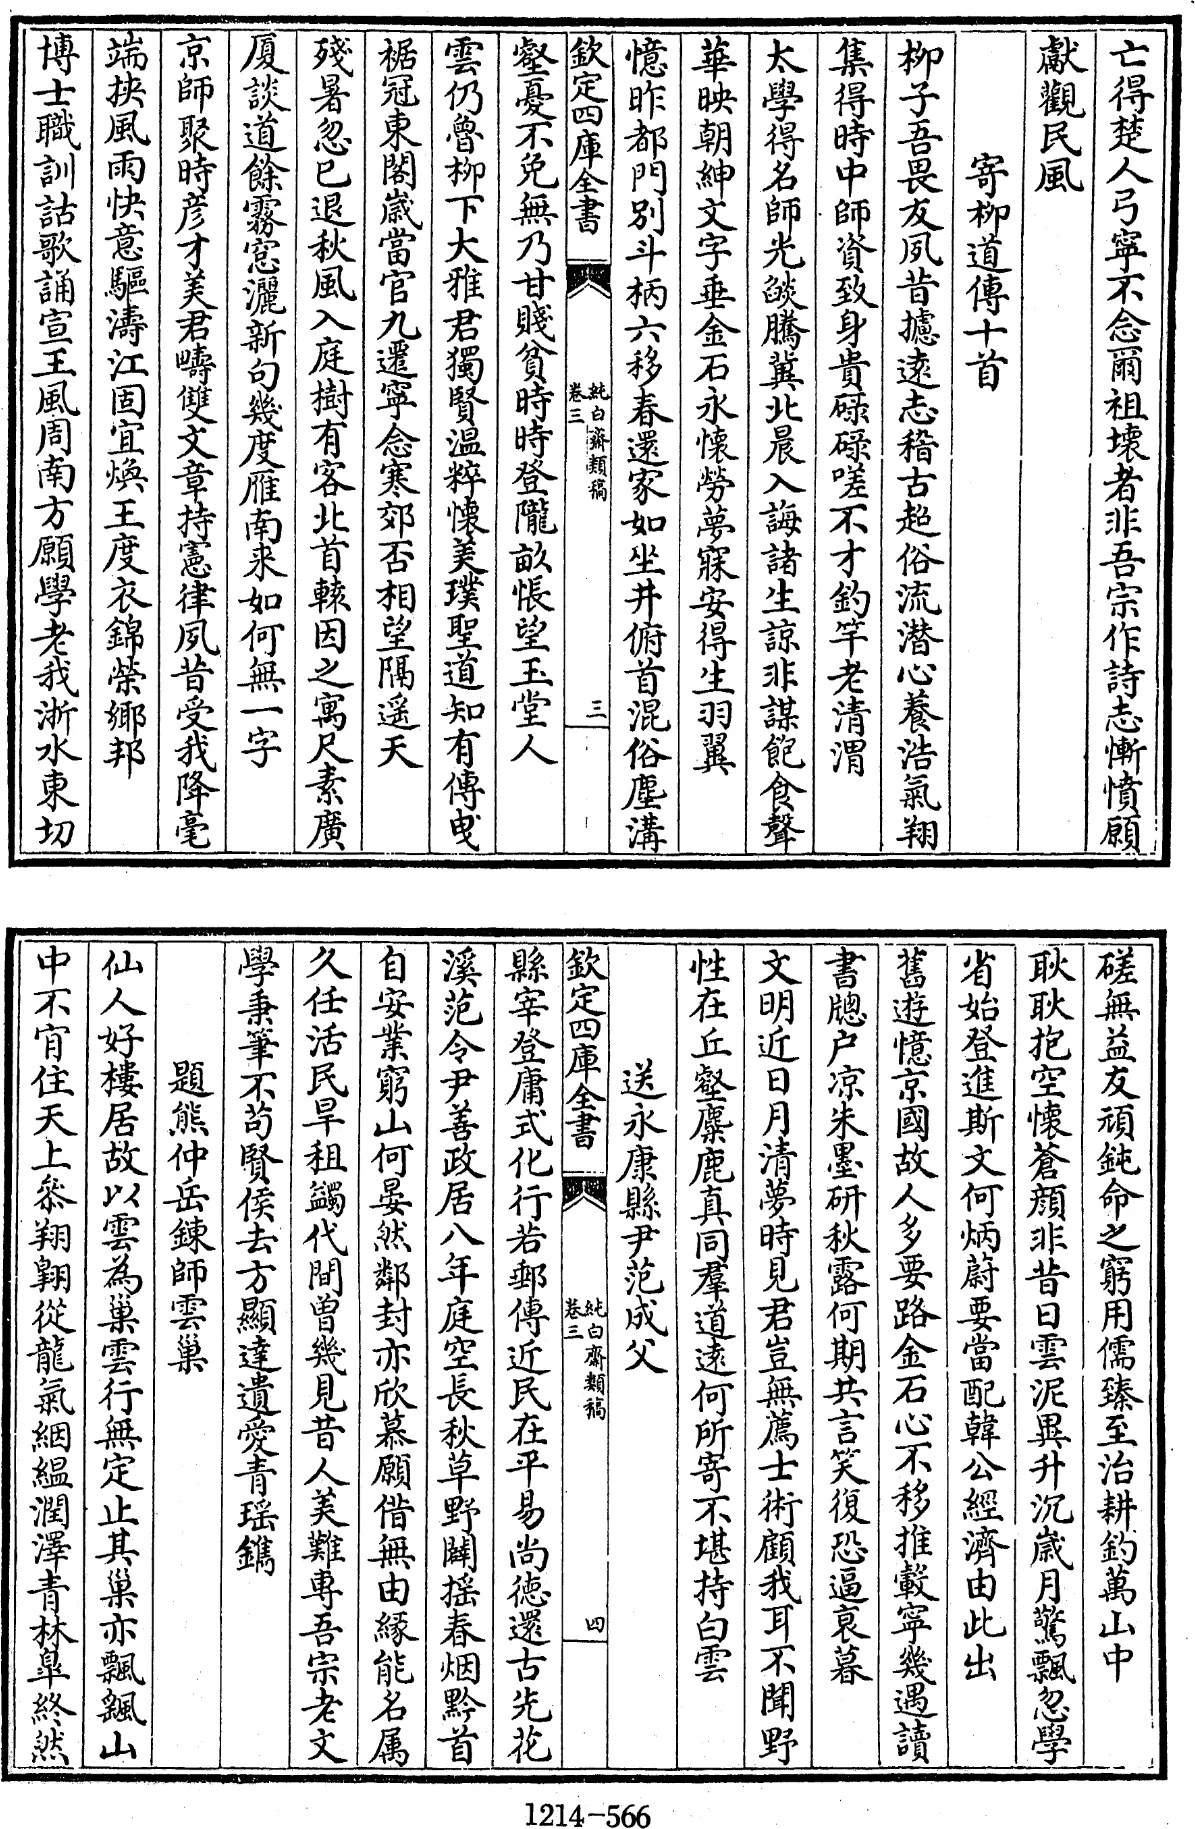 亡得楚人弓寧不念爾祖壞者非吾宗作詩志慚憤願
獻觀民風
寄柳道傳十首
柳子吾畏友夙昔攄遠志稽古超俗流潜心養浩氣翔
集得時中師資致身貴碌碌嗟不才釣竿老清渭
太學得名師光燄騰冀北晨入誨諸生諒非謀飽食聲
華映朝紳文字垂金石永懷勞夢寐安得生羽翼
憶昨都門别斗柄六移春還家如坐井俯首混俗塵溝
欽定四庫全書
純白齋類稿
卷三
三
壑憂不免無乃甘賤貧時時登隴畝悵望玉堂人
雲仍魯柳下大雅君獨賢温粹懷美璞聖道知有傳曵
裾冠東閣歲當官九遷寧念寒郊否相望隔遥天
殘暑忽已退秋風入庭樹有客北首轅因之寓尺素廣
厦談道餘霧窓灑新句幾度雁南来如何無一字
京師聚時彦才美君疇雙文章持憲律夙昔受我降毫
端挾風雨快意驅濤江固宜煥王度衣錦榮鄉邦
博士職訓詁歌誦宣王風周南方願學老我浙水東切
磋無益友頑鈍命之窮用儒臻至治耕釣萬山中
耿耿抱空懷蒼顔非昔日雲泥異升沉歲月驚飄忽學
省始登進斯文何炳蔚要當配韓公經濟由此出
舊遊憶京國故人多要路金石心不移推轂寧幾遇讀
書牕户凉朱墨研秋露何期共言笑復恐逼衰暮
文明近日月清夢時見君豈無薦士術顧我耳不聞野
性在丘壑麋鹿真同羣道遠何所寄不堪持白雲
送永康縣尹范成父
欽定四庫全書
純白齋類稿
卷三
四
縣宰登庸式化行若郵傳近民在平易尚德還古先花
溪范令尹善政居八年庭空長秋草野闢摇春烟黔首
自安業窮山何晏然鄰封亦欣慕願借無由緣能名属
久任活民旱租蠲代間曾幾見昔人美難專吾宗老文
學秉筆不苟賢侯去方顯達遺愛青瑶鐫
題熊仲岳鍊師雲巢
仙人好樓居故以雲為巢雲行無定止其巢亦飄飖山
中不宵住天上叅翔翺從龍氣絪緼潤澤青林臯終然
1214-566